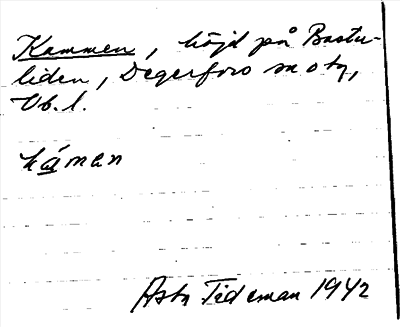 Kammen, höjd på Bastu-
liden, Degerfors sn o tg,
Vb. l.
káman
Asta Tideman 1942